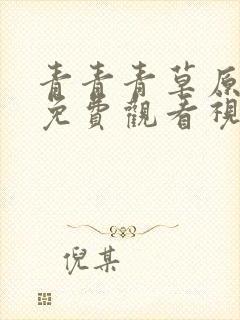 青青青草原
免費觀看視
倪某